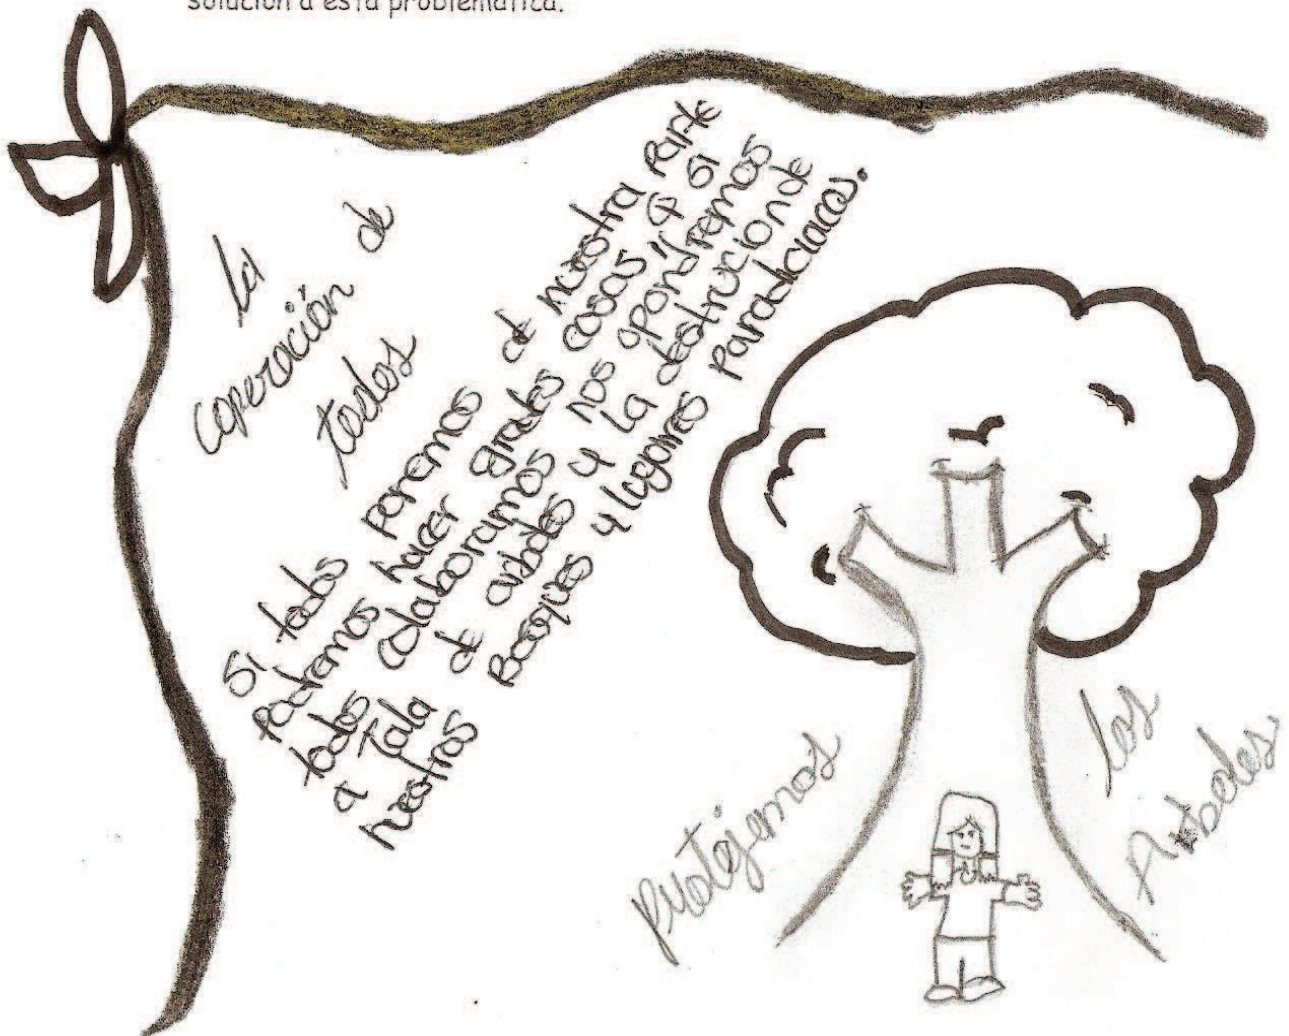 solución a esta problemática.
la
coperación de
todos
Si todos poremos de nuestra parte
podremos hacer grades cosas y q si
todos colaboramos nos opondremos
a tala de arboles y la destrucion de
nuestras Bosques y lugares paradiciacos.
protejemos
los
Arboles